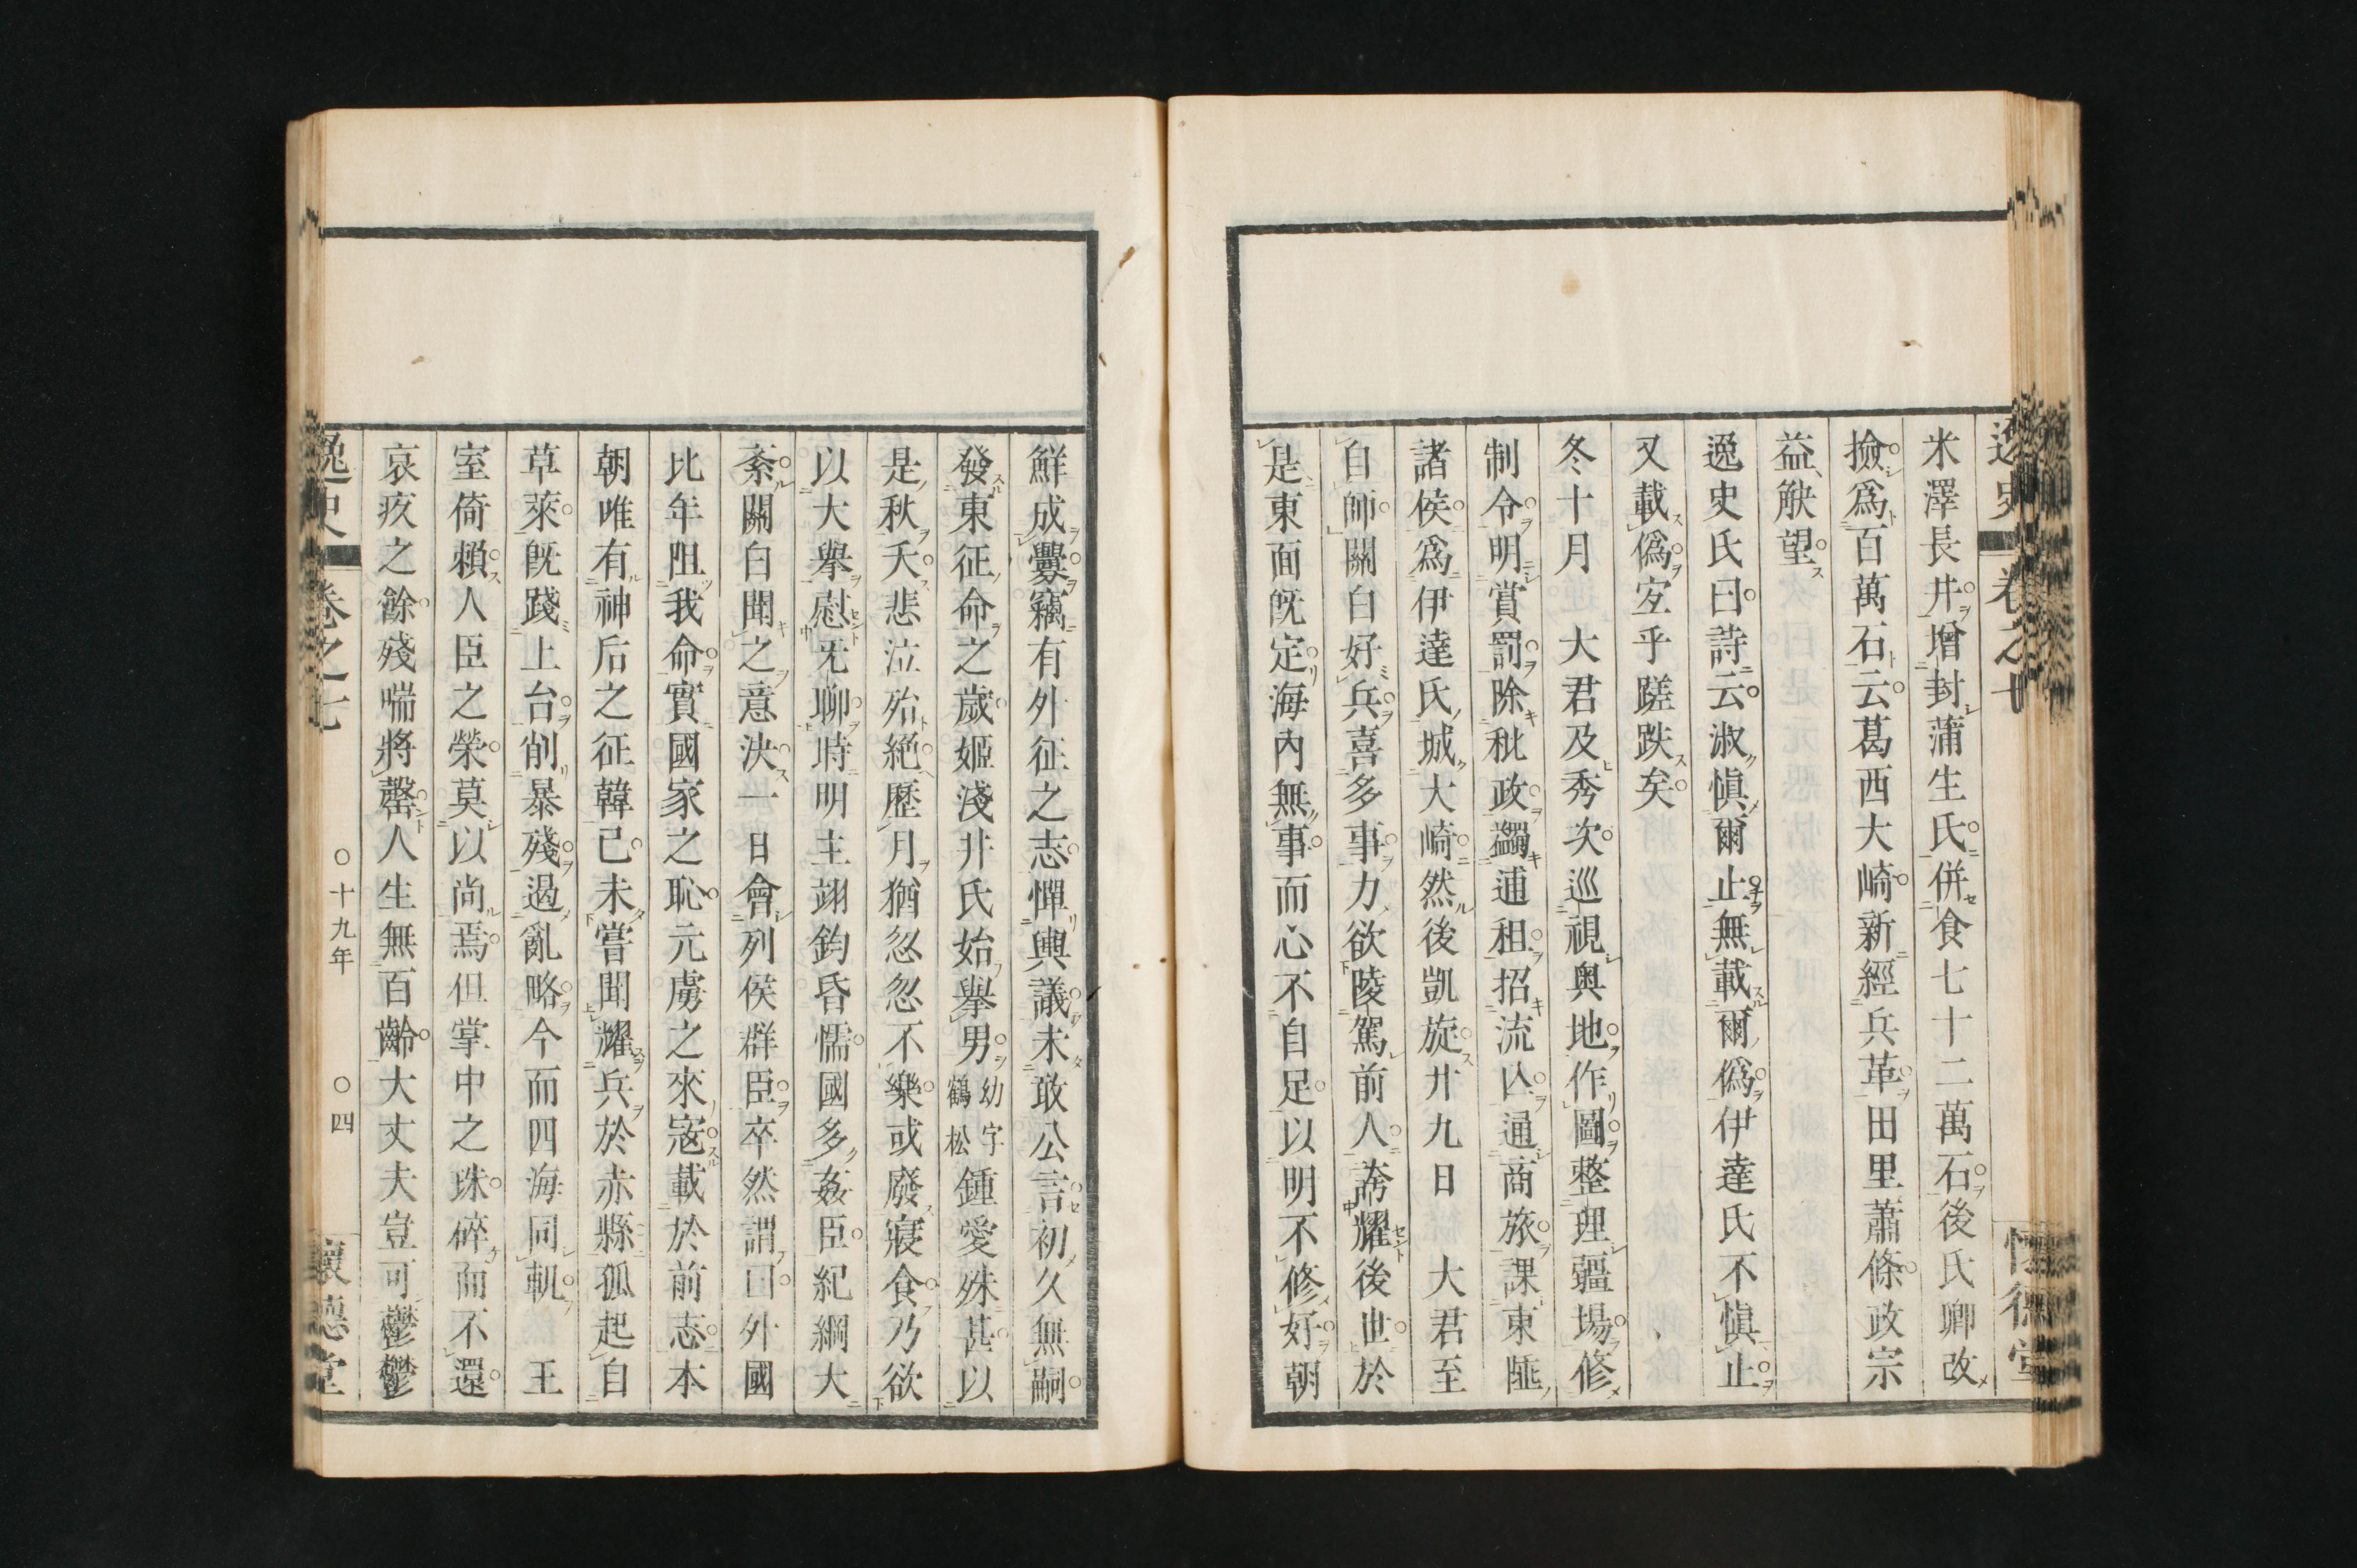 米澤長井增封蒲生氏併食七十二萬石後氏卿改
撿爲百萬石云葛西大崎新經兵革田里蕭條政宗
益觖望
逸史氏曰詩云淑愼爾止無載爾僞伊達氏不愼止
又載僞宐乎蹉跌矣
冬十月大君及秀次巡視輿地作圖整理疆場修
制令明賞罰除秕政蠲逋租招流亾通商旅課東陲
諸侯爲伊達氏城大崎然後凱旋廾九日大君至
自師關白好兵喜多事力欲陵駕前人誇耀後世於
是東面旣定海內無事而心不自足以明不修好朝
鮮成釁竊有外征之志憚輿議未敢公言初久無嗣
發東征命之歲姬淺井氏始擧男幼字鶴松鍾愛殊甚以
是秋夭悲泣殆絕歷月猶忽忽不樂或廢寢食乃欲
以大擧慰旡聊時明主翊鈞昏懦國多姦臣紀綱大
紊關白聞之意決一日會列侯群臣卒然謂曰外國
比年阻我命實國家之恥元虜之來寇載於前志本
朝唯有神后之征韓已未嘗聞耀兵於赤縣孤起自
草萊旣踐上台削暴殘遏亂略今而四海同軌王
室倚賴人臣之榮莫以尚焉但掌中之珠碎而不還
哀疚之餘殘喘將罄人生無百齡大丈夫豈可鬱鬱
逸史 卷之七 〇十九年 〇四 懷德堂